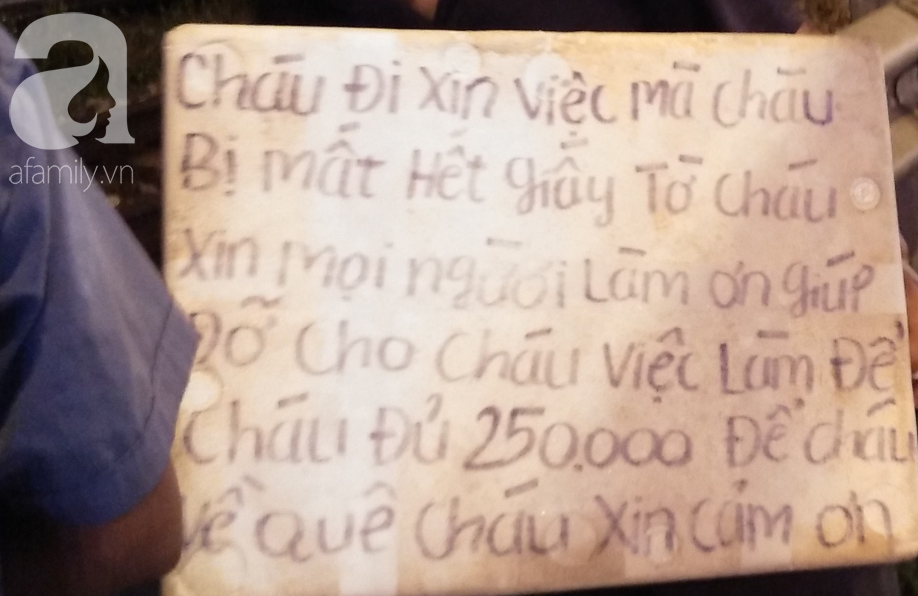 a
afamily.vn
Cháu Đi xin việc mà cháu
Bị mất Hết giấy Tờ cháu
Xin mọi người Làm ơn giúp
Đỡ cho cháu việc Làm Để
Cháu Đủ 250.000 Để cháu
về quê cháu Xin cảm ơn